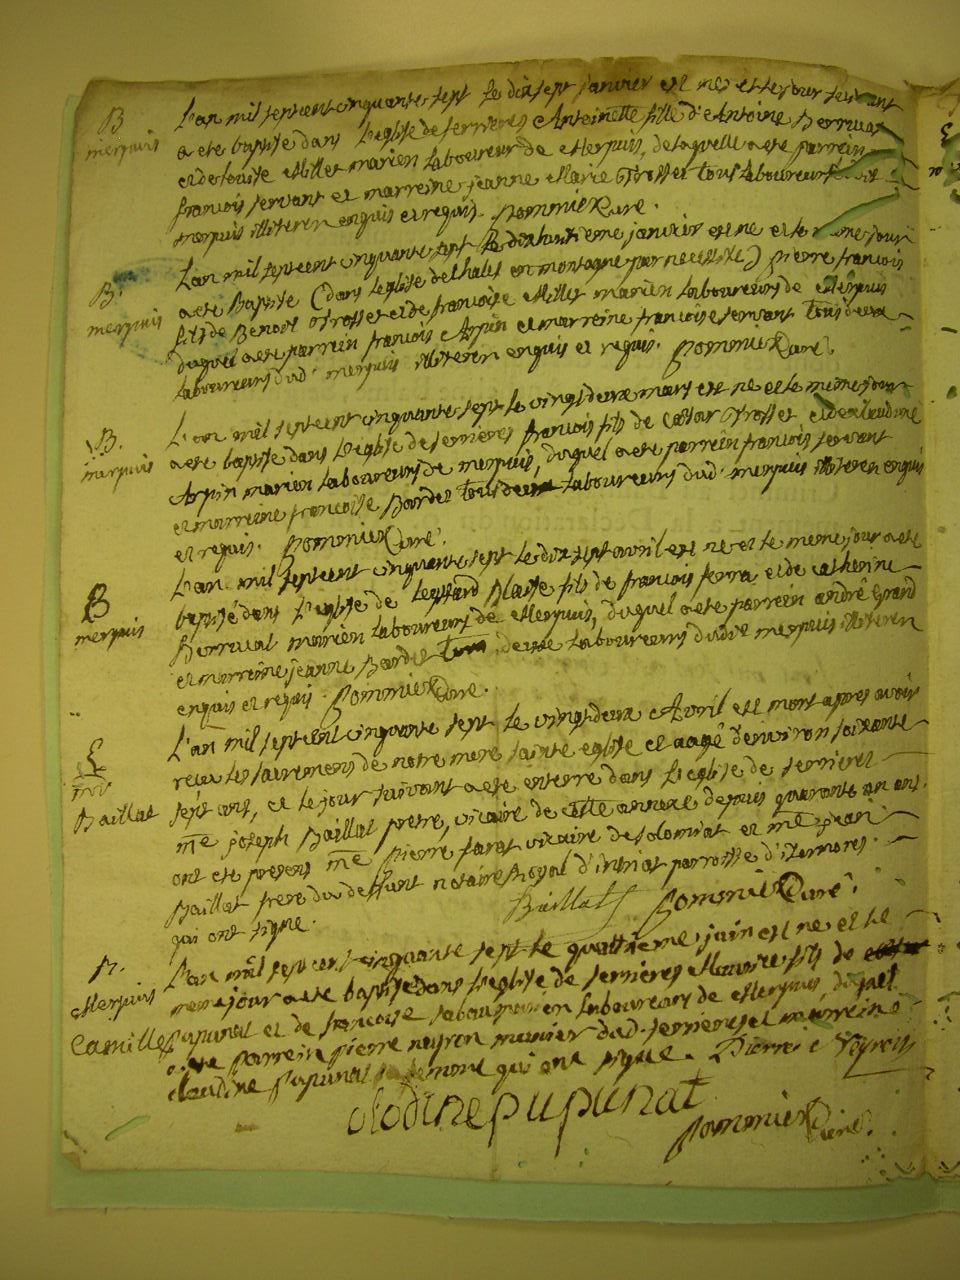 B
merpuis
L'an mil septcent cinquante sept le dix sept janvier est née et le jour suivant
a ete baptisée dans L'eglise de serrieres Antoinette fille d'Antoine Berruat
et de louise Millet mariez Laboureur de Merpuis, de laquelle a ete parrein
francois servant et marreine jeanne Marie Trosset tous Laboureurs
merpuis illiteréz enquis et requis. Sommier Curé.
B.
merpuis
L'an mil septcent cinquante sept le dixhuitieme janvier est né et le meme jour
a ete Baptisé (dans l'eglise de Chaley en montagne par necessité) pierre francois
fils de Benoit Trosset et de françoise Millet mariez laboureurs de Merpuis
duquel a ete parrein francois Arpin et marreine francoise servant tous deux
laboureurs dud. merpuis illiteréz enquis et requis. Sommier Curé.
B.
merpuis
L'an mil septcent cinquante sept le vingt deux mars est né et le même jour
a ete baptisé dans L'eglise de serrieres francois fils de Trosset et de claudine
Arpin mariez laboureurs de merpuis, duquel a ete parrein francois servant
et marreine francoise Bardet tous deux laboureurs dud. merpuis illiteréz enquis
et requis. Sommier Curé.
B
merpuis
L'an mil septcent cinquante sept le dix sept avril est né et le meme jour a ete
baptisé dans L'eglise de Leyssard Blaise fils de francois ferra et de catherine
Berruat mariez laboureurs de Merpuis, duquel a ete parrein andré Grand
et marreine jeanne Bardet deux Laboureurs dudit merpuis illiteréz
enquis et requis. Sommier Curé.
E
Baillat
L'an mil septcent cinquante sept le vingt deux Avril est mort apres avoir
recu les sacremens de notre mere sainte eglise et aagé d'environ soixante
sept ans, et le jour suivant a ete enterré dans L'eglise de serrieres
me joseph Baillat pretre, vicaire de cette annexe depuis quarante un ans.
ont ete presens me pierre farat vicaire de solomiat et me jean
Baillat frere du deffunt notaire Royal d'intriat parroisse d'izernores.
qui ont signé. Baillat Sommier Curé.
B.
Merpuis
Camille
L'an mil septcent cinquante sept le quatrieme juin est né et le
meme jour a ete baptisé dans l'eglise de serrieres Maurice fils de
Pupunat et de francoise mariez laboureurs de Merpuis, duquel
a ete parrein pierre neyron munier dud. serrieres et marreine
claudine Pupunat qui ont signé. Pierre Neyron
clodine pupunat
Sommier Curé.